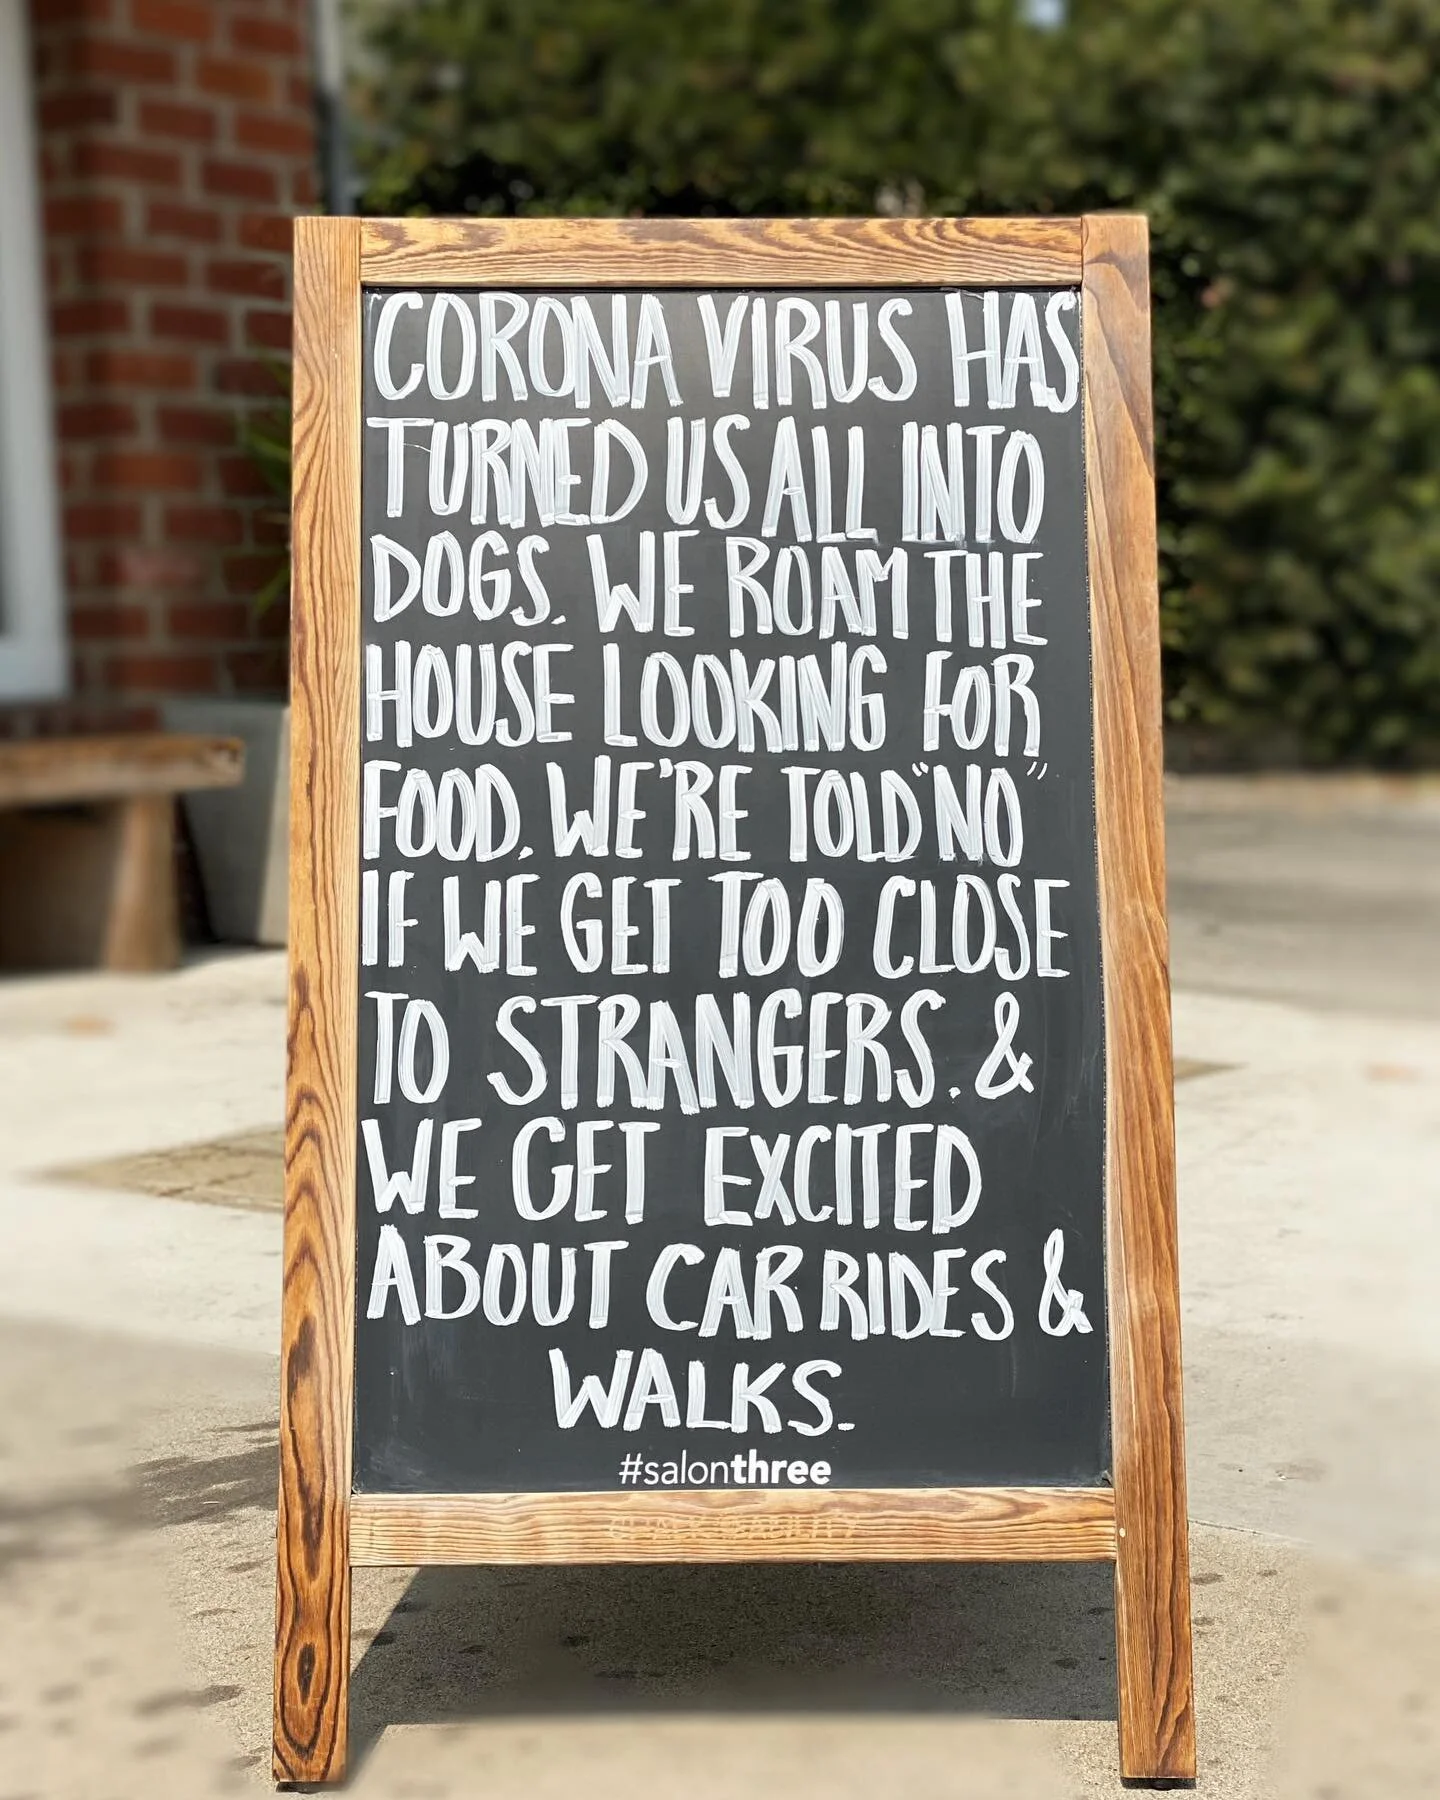 CORONA VIRUS HAS
TURNED US ALL INTO
DOGS. WE ROAM THE
HOUSE LOOKING FOR
FOOD. WE'RE TOLD "NO"
IF WE GET TOO CLOSE
TO STRANGERS. &
WE GET EXCITED
ABOUT CAR RIDES &
WALKS.
#salonthree